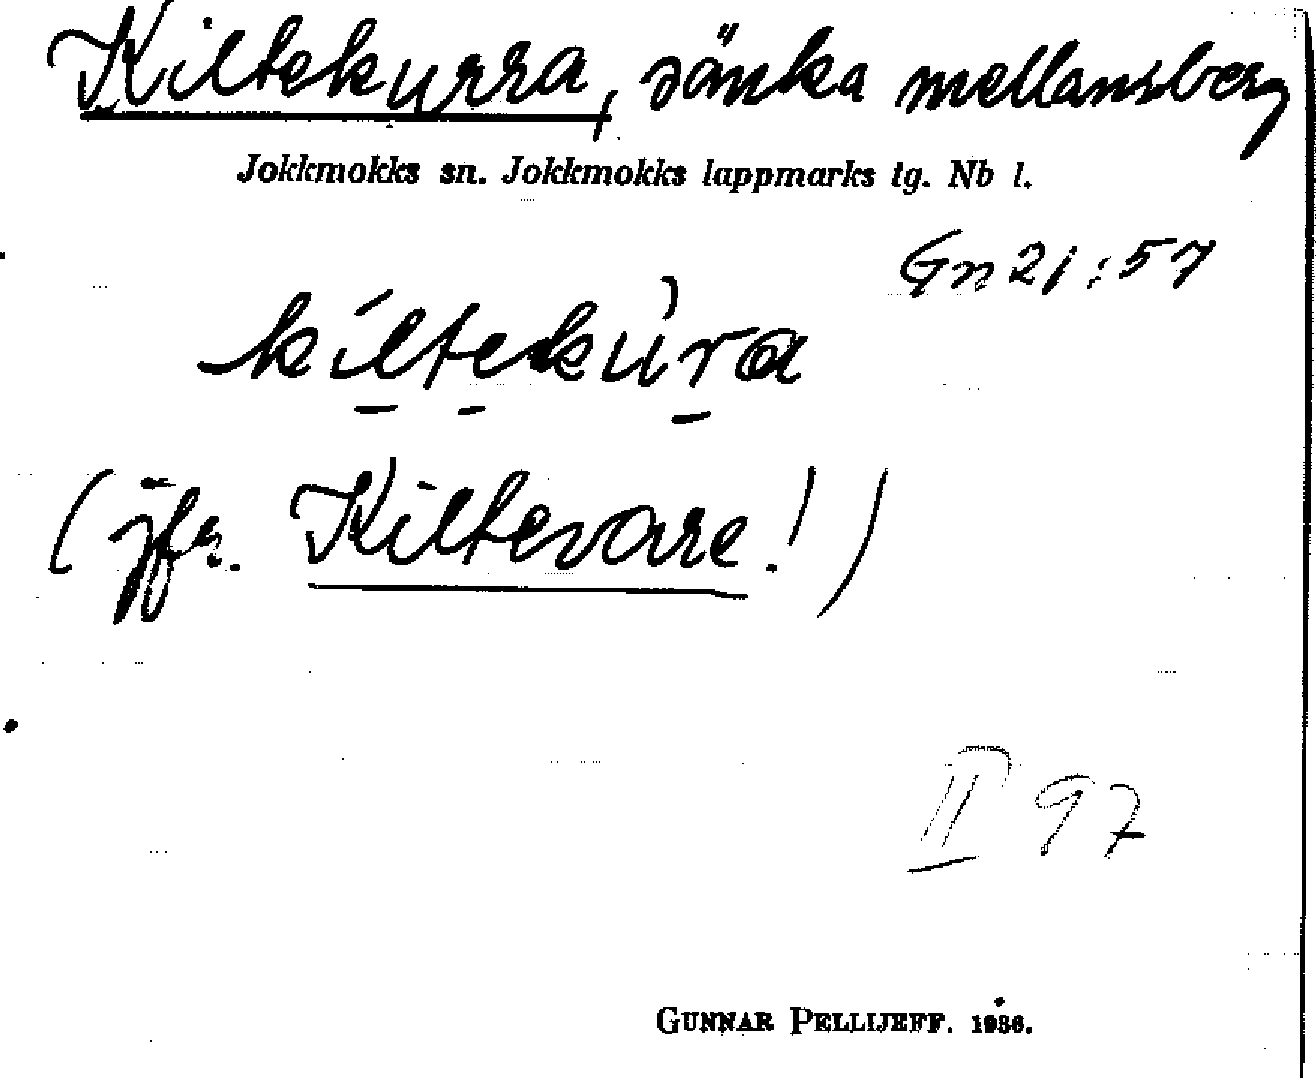 Kiltekurra, sänka mellansberg
Jokkmokks sn. Jokkmokks lappmarks tg. Nb l.
Gn 21:57
kíltekùra
(jfr. Kiltevare!)
II 97
GUNNAR PELLIJEFF. 1936.